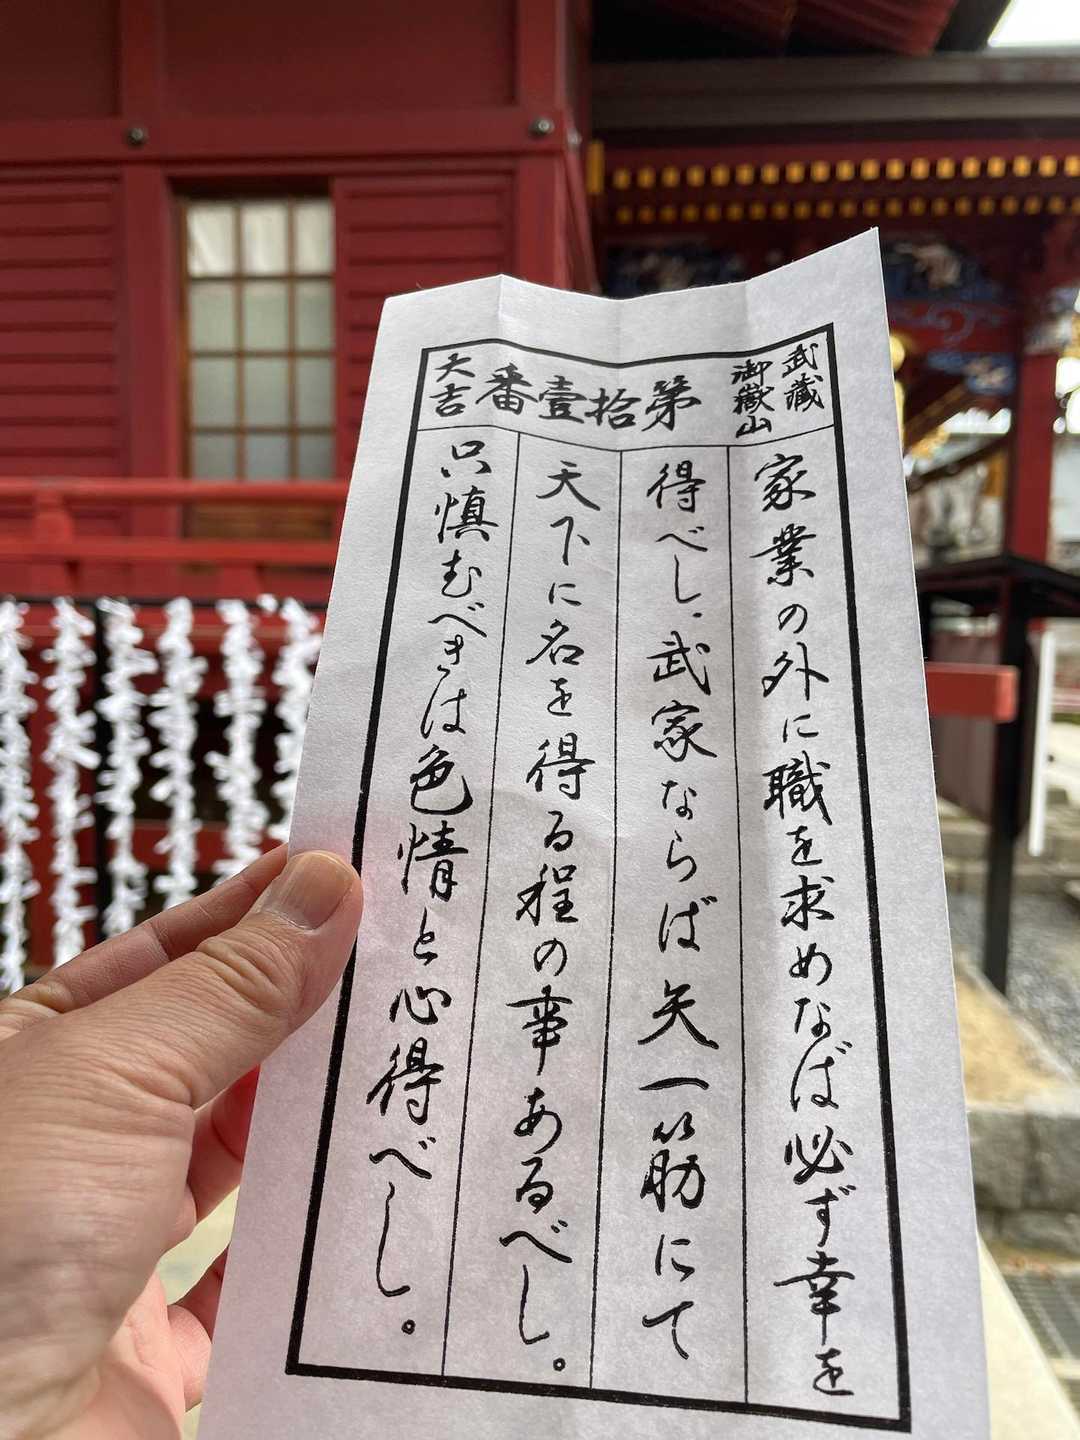 武蔵
御嶽山
第拾壹番
大吉
家業の外に職を求めなば必ず幸を
得べし、武家ならば矢一筋にて
天下に名を得る程の事あるべし。
只慎むべきは色情と心得べし。